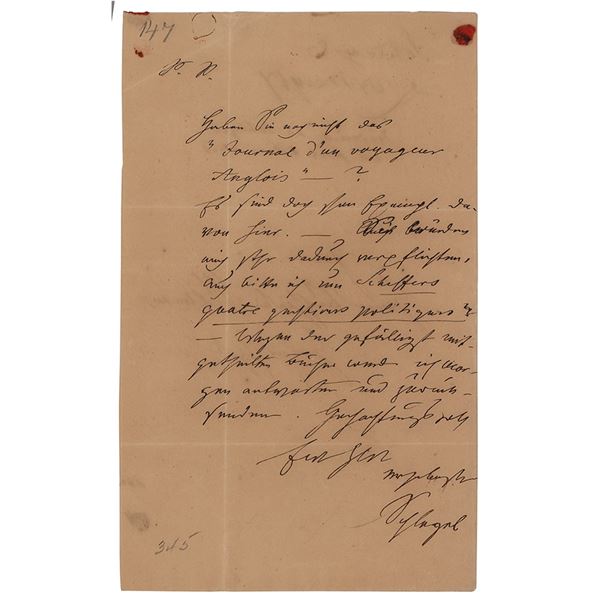 147
P. P.
Haben Sie noch nicht das
"Journal d'un voyageur
Anglois" — ?
Es sind doch schon Exempl. da-
von hier. — Sie würden
mich sehr dadurch verpflichten,
auch bitte ich um Scheffers
quatre questions politiques
— Wegen der gefälligst mit-
getheilten Bücher werde ich mor-
gen antworten und zurück-
senden. Hochachtungsvoll
ergebenster
Schlegel
345